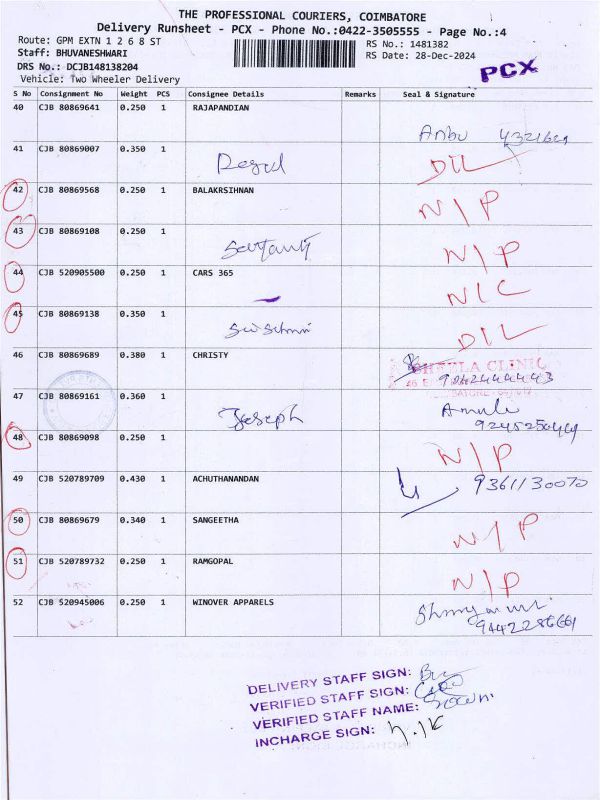 THE PROFESSIONAL COURIERS, COIMBATORE
Delivery Runsheet - PCX - Phone No.:0422-3505555 - Page No.:4
Route: GPM EXTN 1 2 6 8 ST
RS No.: 1481382
Staff: BHUVANESHWARI
RS Date: 28-Dec-2024
DRS No.: DCJB148138204
PCX
Vehicle: Two Wheeler Delivery
S No Consignment No Weight PCS Consignee Details Remarks Seal & Signature
40 CJB 80869641 0.250 1 RAJAPANDIAN
Anbu
41 CJB 80869007 0.350 1
D/L
42 CJB 80869568 0.250 1 BALAKRSIHNAN N/P
43 CJB 80869108 0.250 1 N/P
44 CJB 520905500 0.250 1 CARS 365 N/C
45 CJB 80869138 0.350 1 D/L
46 CJB 80869689 0.380 1 CHRISTY
SHEELA CLINIC
47 CJB 80869161 0.360 1
Joseph
48 CJB 80869098 0.250 1 N/P
49 CJB 520789709 0.430 1 ACHUTHANANDAN
9361130070
50 CJB 80869679 0.340 1 SANGEETHA N/P
51 CJB 520789732 0.250 1 RAMGOPAL
N/P
52 CJB 520945006 0.250 1 WINOVER APPARELS
DELIVERY STAFF SIGN:
VERIFIED STAFF SIGN:
VERIFIED STAFF NAME:
INCHARGE SIGN: